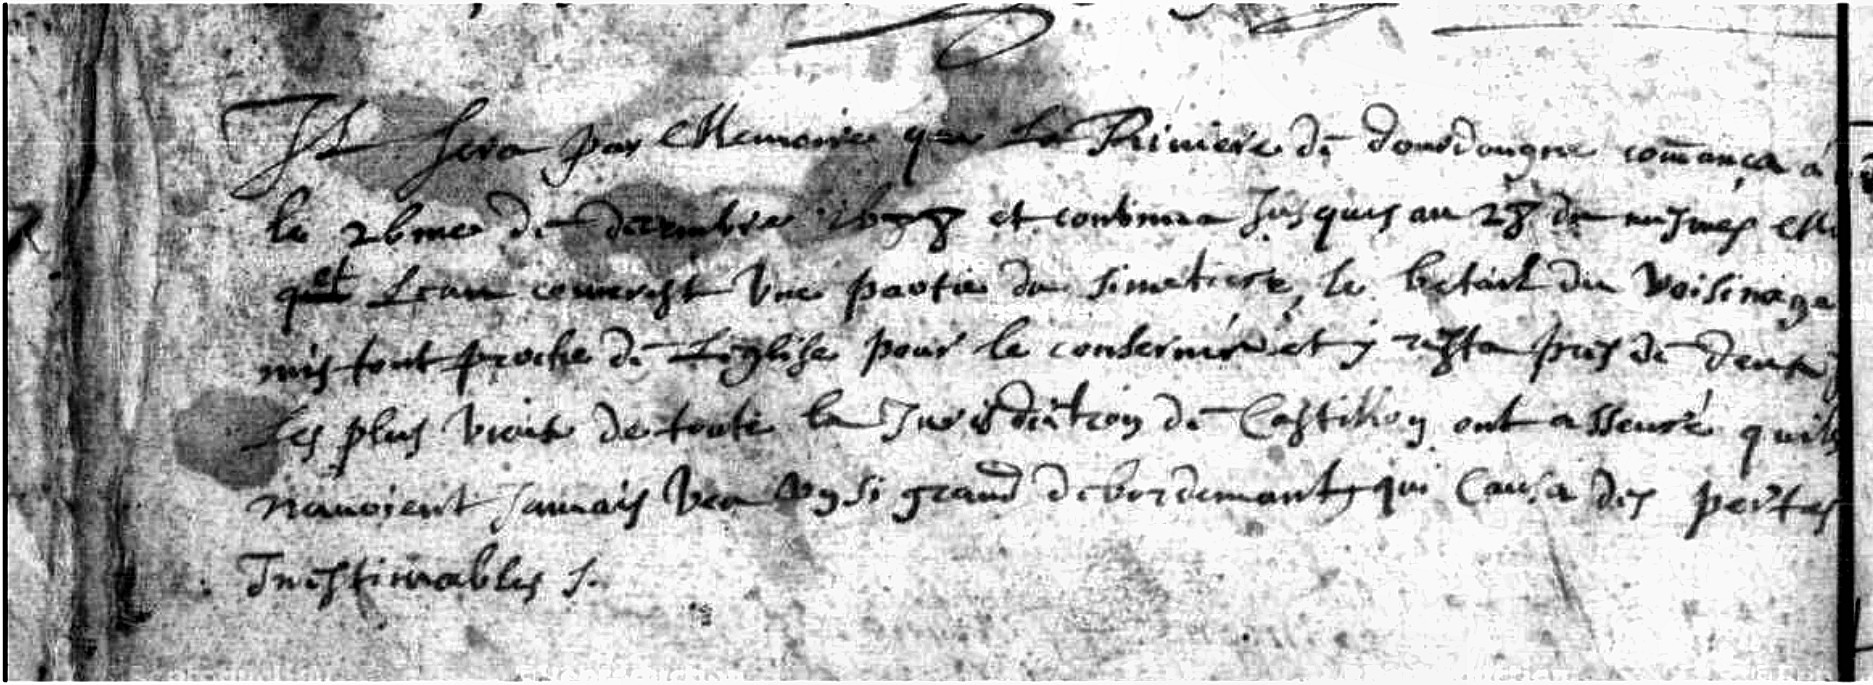 Il sera par Memoire que la Riviere de dourdougne comança à
le 26me de decembre et continua Jusques au 28 du mesmes
et Leau couvroist vne partie du simetiere, le betail du voisinage
mis tout proche de Leglise pour le conserver et y resta pres de deux
Les plus vieux de toute la Jurisdiction de Castillon ont asseuré quils
navoient Jamais veu vn si grand debordemant, qui Causa des pertes
Inestimables